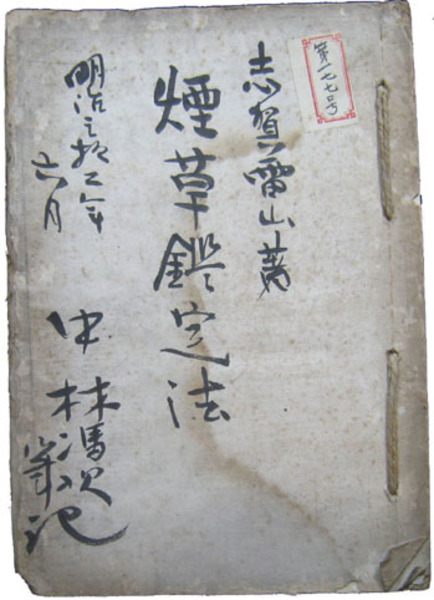 第一七七号
志賀雷山著
煙草鑑定法
明治三拾二年
六月
中林馮次
筆記